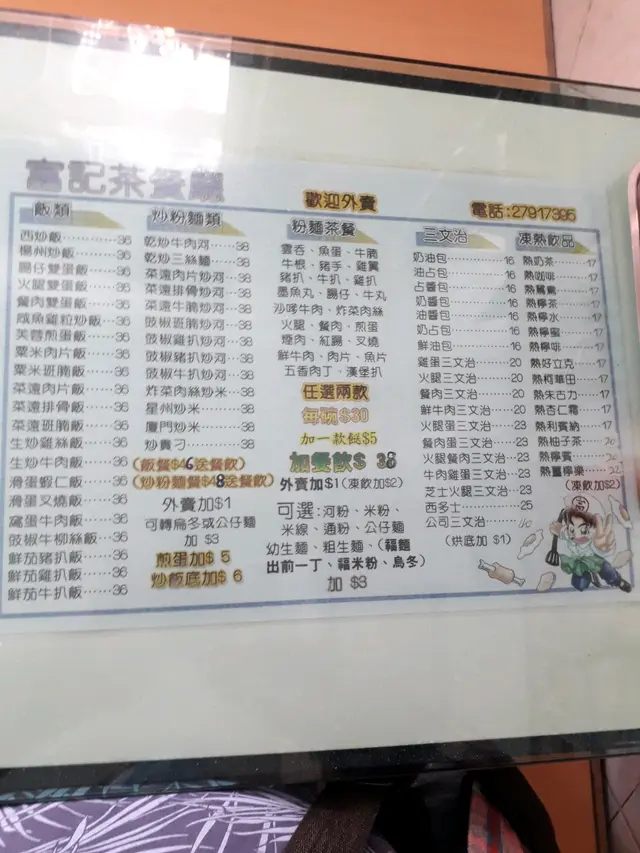 富記茶餐廳
歡迎外賣
電話:27917395
飯類
西炒飯……36
楊州炒飯……36
腸仔雙蛋飯……36
火腿雙蛋飯……36
餐肉雙蛋飯……36
咸魚雞粒炒飯…36
芙蓉煎蛋飯……36
粟米肉片飯……36
粟米斑腩飯……36
菜遠肉片飯……36
菜遠排骨飯……36
菜遠斑腩飯……36
生炒雞絲飯……36
生炒牛肉飯……36
滑蛋蝦仁飯……36
滑蛋叉燒飯……36
窩蛋牛肉飯……36
豉椒牛柳絲飯…36
鮮茄豬扒飯……36
鮮茄雞扒飯……36
鮮茄牛扒飯……36
炒粉麵類
乾炒牛肉河……38
乾炒三絲麵……38
菜遠肉片炒河…38
菜遠排骨炒河…38
菜遠牛腩炒河…38
豉椒斑腩炒河…38
豉椒雞扒炒河…38
豉椒豬扒炒河…38
豉椒牛扒炒河…38
炸菜肉絲炒米…38
星州炒米………38
廈門炒米………38
炒貴刁…………38
(飯餐$46送餐飲)
(炒粉麵餐$48送餐飲)
外賣加$1
可轉烏冬或公仔麵
加 $3
煎蛋加$ 5
炒飯底加$ 6
粉麵茶餐
雲吞、魚蛋、牛腩
牛根、豬手、雞翼
豬扒、牛扒、雞扒
墨魚丸、腸仔、牛丸
沙嗲牛肉、炸菜肉絲
火腿、餐肉、煎蛋
煙肉、紅腸、叉燒
鮮牛肉、肉片、魚片
五香肉丁、漢堡扒
任選兩款
每碗$30
加一款餸$5
加餐飲$ 38
外賣加$1(凍飲加$2)
可選:河粉、米粉、
米線、通粉、公仔麵
幼生麵、粗生麵、(福麵
出前一丁、福米粉、烏冬)
加 $3
三文治
奶油包……16
油占包……16
占醬包……16
奶醬包……16
油醬包……16
奶占包……16
鮮油包……16
雞蛋三文治……20
火腿三文治……20
餐肉三文治……20
鮮牛肉三文治…20
火腿蛋三文治…23
餐肉蛋三文治…23
火腿餐肉三文治…23
牛肉雞蛋三文治…23
芝士火腿三文治…23
西多士…………25
公司三文治……
(烘底加 $1)
凍熱飲品
熱奶茶……17
熱咖啡……17
熱鴛鴦……17
熱檸茶……17
熱檸水……17
熱檸蜜……17
熱檸啡……17
熱好立克……17
熱柯華田……17
熱朱古力……17
熱杏仁霜……17
熱利賓納……17
熱柚子茶……20
熱檸賓……
熱薑檸樂……
(凍飲加$2)